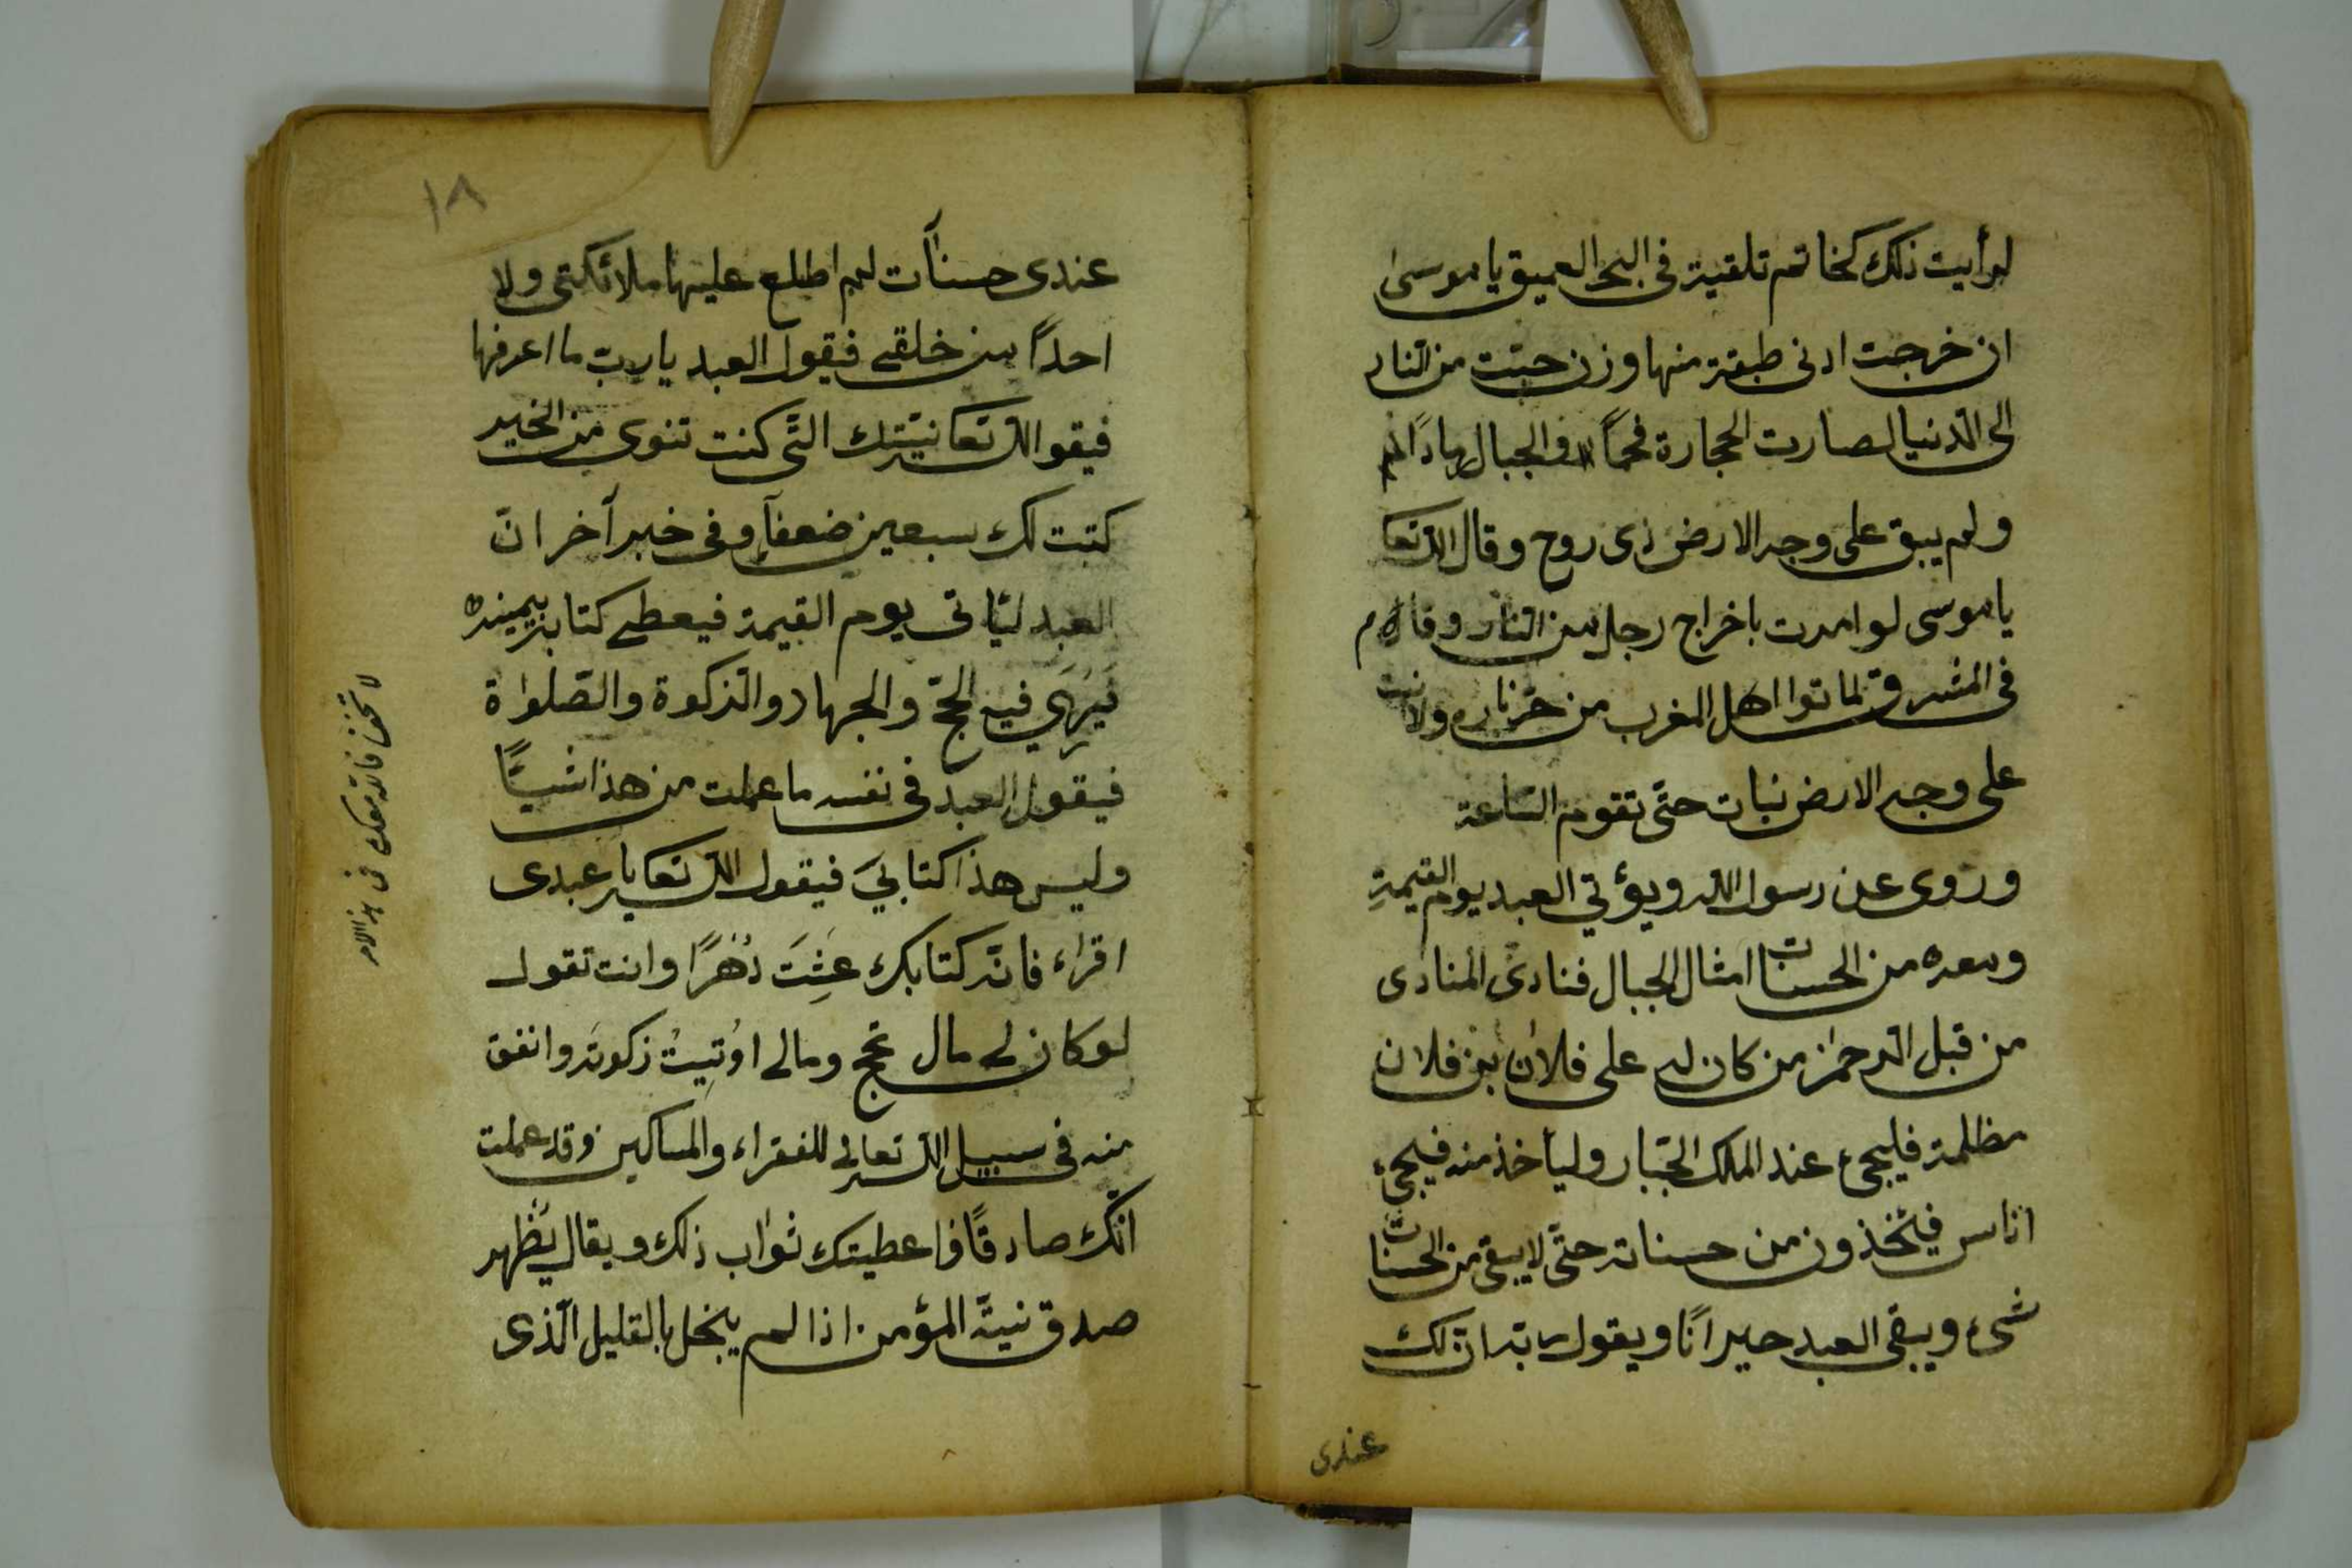 لرأيت ذلك كخاتم تلقية فى البحر العميق يا موسى
ان خرجت ادنى طبقة منها وزن حبّة من النّار
الى الدّنيا لصارت الحجارة فحماً والجبال رماداً
ولم يبق على وجه الارض ذى روح وقال اللّه تعا
يا موسى لو امرت باخراج رجل من النّار وقام
فى المشرق لماتوا اهل المغرب من حرّ ناره ولا نبت
على وجه الارض نبات حتّى تقوم السّاعة
وروى عن رسول اللّه ويؤتي العبد يوم القيمةِ
ومعه من الحسنات امثال الجبال فنادى المنادى
من قبل الرّحمٰن من كان له على فلان بن فلان
مظلمة فليجئ عند الملك الجبّار وليأخذ منه فيجئ
اناس فيئخذون من حسناته حتّى لا يبقى من الحسنات
شىء ويبقى العبد حيراناً ويقول ربّه ان لك
عندى
١٨
عندى حسنآت لم اطلع عليها ملائكتى ولا
احداً من خلقى فيقول العبد يا ربّ ما اعرفها
فيقو اللّه تعا نيّتك الّتى كنت تنوى من الخير
كتبت لك سبعين ضعفاً وفى خبر آخر انّ
العبد ليّاتى يوم القيمة فيعطى كتابه بيمينه
فيَرَي فيه الحجّ والجهاد والزّكوة والصّلواة
فيقول العبد فى نفسه ما عملت من هذا شيئاً
وليس هذا كتابيَ فيقول اللّه تعا يا عبدى
اقراء فانّه كتابك عِشِتَ دَهْراً وانت تقول
لو كان لى مال لحج ومالى اوُتيتُ زكوته وانفق
منه فى سبيل اللّه تعالى للفقراء والمساكين وقد عملت
انّك صادقاً فاعطيتك ثواب ذلك ويقال يُظهر
صدق نيّة المؤمن اذا لم يبخل بالقليل الّذى
لا تحف فانه معك فى هذا الامر